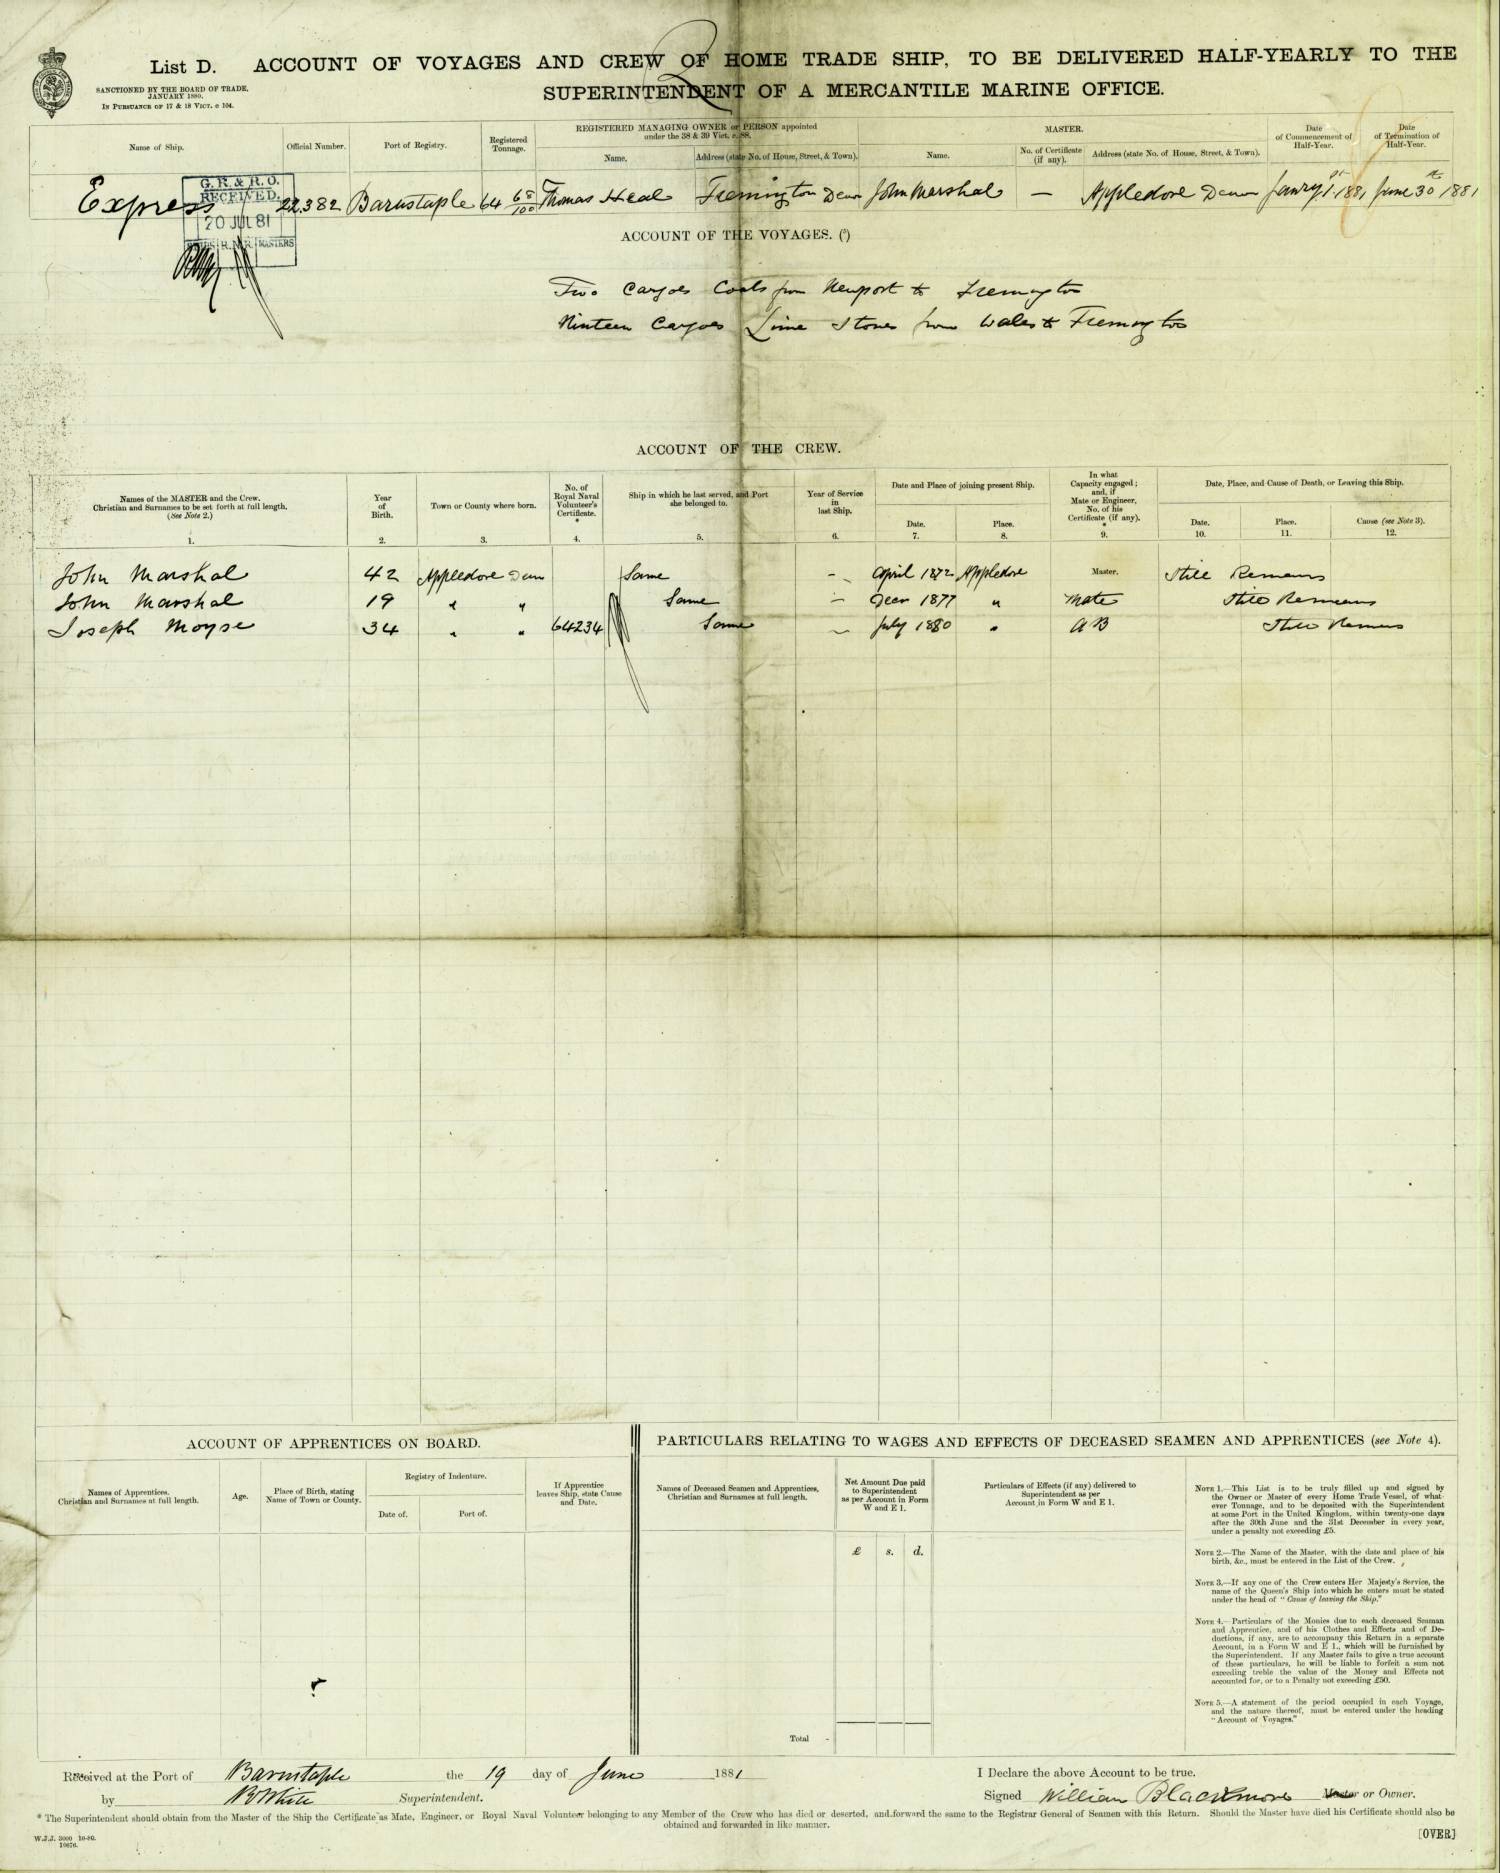 List D. ACCOUNT OF VOYAGES AND CREW OF HOME TRADE SHIP, TO BE DELIVERED HALF-YEARLY TO THE
SUPERINTENDENT OF A MERCANTILE MARINE OFFICE.
SANCTIONED BY THE BOARD OF TRADE,
JANUARY 1880.
IN PURSUANCE OF 17 & 18 VICT. c 104.
Name of Ship.
Official Number.
Port of Registry.
Registered
Tonnage.
REGISTERED MANAGING OWNER or PERSON appointed
under the 38 & 39 Vict. c. 88.
Name.
Address (state No. of House, Street, & Town).
MASTER.
Name.
No. of Certificate
(if any).
Address (state No. of House, Street, & Town).
Date
of Commencement of
Half-Year.
Date
of Termination of
Half-Year.
Express 22,382 Barnstaple 64 68/100 Thomas Heal Fremington Devon John Marshal — Appledore Devon Janry 1st 1881 June 30th 1881
G. R. & R. O.
RECEIVED.
20 JUL 81
R.N.R. MASTERS
ACCOUNT OF THE VOYAGES. (5)
Two Cargoes Coals from Newport to Fremington
Ninteen Cargoes Lime Stones from Wales to Fremington
ACCOUNT OF THE CREW.
Names of the MASTER and the Crew.
Christian and Surnames to be set forth at full length.
(See Note 2.)
1.
Year
of
Birth.
2.
Town or County where born.
3.
No. of
Royal Naval
Volunteer's
Certificate.
*
4.
Ship in which he last served, and Port
she belonged to.
5.
Year of Service
in
last Ship.
6.
Date and Place of joining present Ship.
Date.
7.
Place.
8.
In what
Capacity engaged;
and, if
Mate or Engineer,
No. of his
Certificate (if any).
*
9.
Date, Place, and Cause of Death, or Leaving this Ship.
Date.
10.
Place.
11.
Cause (see Note 3).
12.
John Marshal 42 Appledore Devn Same - April 1872 Appledore Master. Still Remains
John Marshal 19 " " Same - Decr 1877 " Mate Still Remains
Joseph Moyse 34 " " 64234 Same - July 1880 " AB Still Remains
ACCOUNT OF APPRENTICES ON BOARD.
Names of Apprentices.
Christian and Surnames at full length.
Age.
Place of Birth, stating
Name of Town or County.
Registry of Indenture.
Date of.
Port of.
If Apprentice
leaves Ship, state Cause
and Date.
PARTICULARS RELATING TO WAGES AND EFFECTS OF DECEASED SEAMEN AND APPRENTICES (see Note 4).
Names of Deceased Seamen and Apprentices,
Christian and Surnames at full length.
Net Amount Due paid
to Superintendent
as per Account in Form
W and E 1.
£ s. d.
Particulars of Effects (if any) delivered to
Superintendent as per
Account in Form W and E 1.
Total -
NOTE 1.—This List is to be truly filled up and signed by
the Owner or Master of every Home Trade Vessel, of what-
ever Tonnage, and to be deposited with the Superintendent
at some Port in the United Kingdom, within twenty-one days
after the 30th June and the 31st December in every year,
under a penalty not exceeding £5.
NOTE 2.—The Name of the Master, with the date and place of his
birth, &c., must be entered in the List of the Crew.
NOTE 3.—If any one of the Crew enters Her Majesty's Service, the
name of the Queen's Ship into which he enters must be stated
under the head of "Cause of leaving the Ship."
NOTE 4.—Particulars of the Monies due to each deceased Seaman
and Apprentice, and of his Clothes and Effects and of De-
ductions, if any, are to accompany this Return in a separate
Account, in a Form W and E 1., which will be furnished by
the Superintendent. If any Master fails to give a true account
of these particulars, he will be liable to forfeit a sum not
exceeding treble the value of the Money and Effects not
accounted for, or to a Penalty not exceeding £50.
NOTE 5.—A statement of the period occupied in each Voyage,
and the nature thereof, must be entered under the heading
"Account of Voyages."
Received at the Port of Barnstaple the 19 day of June 1881
by White Superintendent.
I Declare the above Account to be true.
Signed William Blackmore Master or Owner.
* The Superintendent should obtain from the Master of the Ship the Certificate as Mate, Engineer, or Royal Naval Volunteer belonging to any Member of the Crew who has died or deserted, and forward the same to the Registrar General of Seamen with this Return. Should the Master have died his Certificate should also be
obtained and forwarded in like manner.
W.J.J. 3000 10-80.
10676.
[OVER]